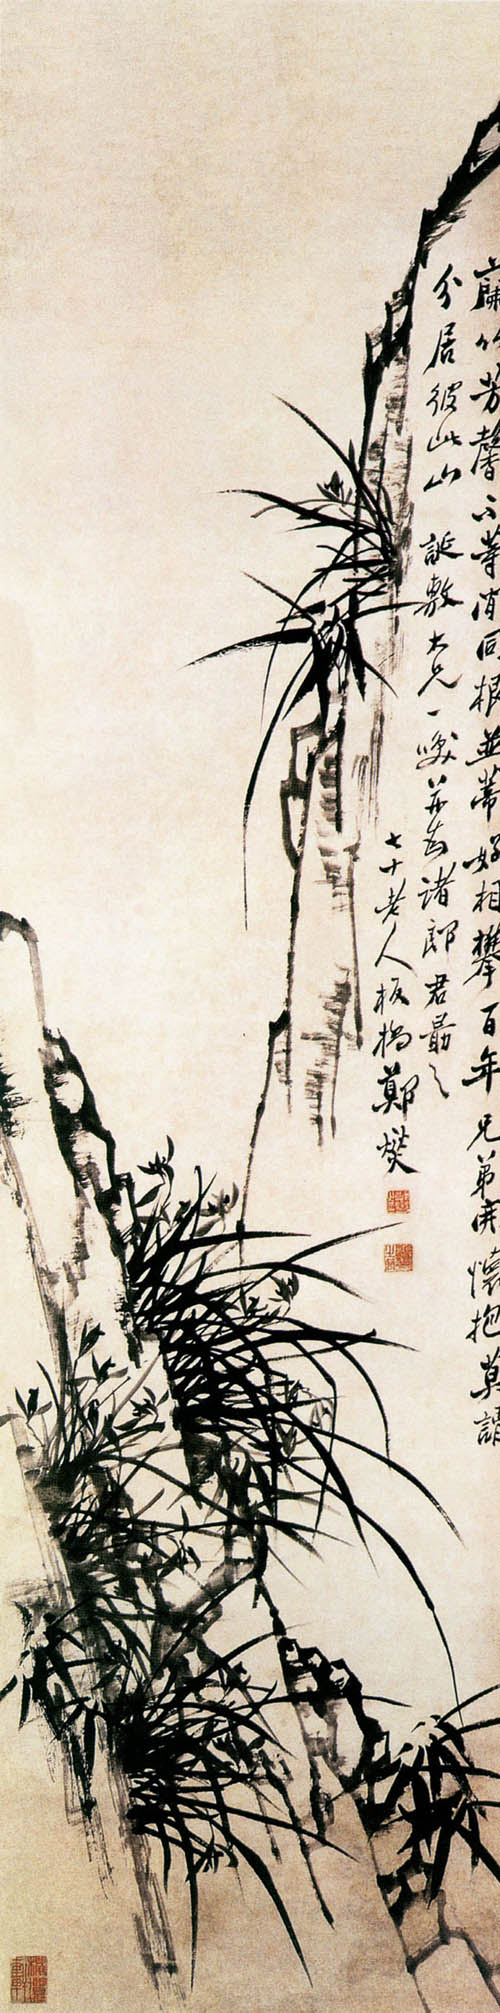 蘭竹芳馨不等閒同根並蒂好相攀百年兄弟開懷抱莫謂
分居彼此山 誕敷大兄一咲并諸郎君勗之
七十老人板橋鄭燮